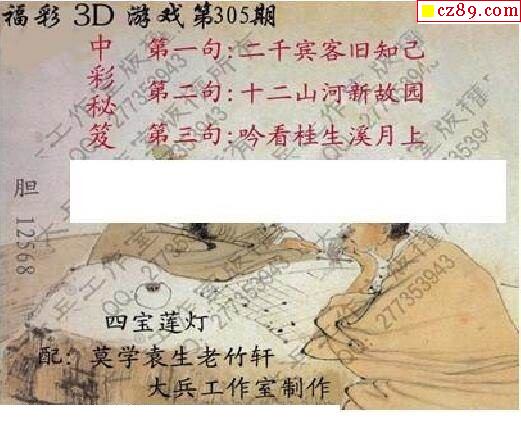 福彩 3D 游戏第305期
cz89.com
中彩秘笈
第一句:二千宾客旧知己
第二句:十二山河新故园
第三句:吟看桂生溪月上
胆 12568
四宝莲灯
配:莫学袁生老竹轩
大兵工作室制作
大兵工作室版权所有
QQ:277353943